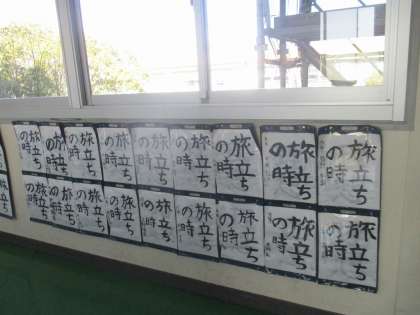 旅立ち
の時
旅立ち
の時
旅立ち
の時
旅立ち
の時
旅立ち
の時
旅立ち
の時
旅立ち
の時
旅立ち
の時
旅立ち
の時
旅立ち
の時
旅立ち
の時
旅立ち
の時
旅立ち
の時
旅立ち
の時
旅立ち
の時
旅立ち
の時
旅立ち
の時
旅立ち
の時